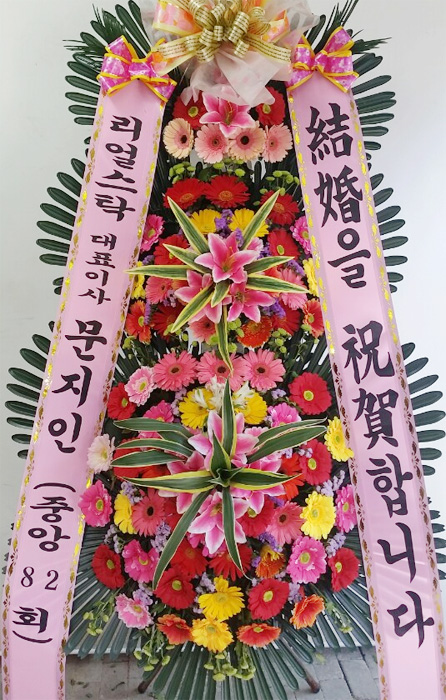 리얼스탁 대표이사 문지인 (중앙 82회)
結婚을 祝賀합니다